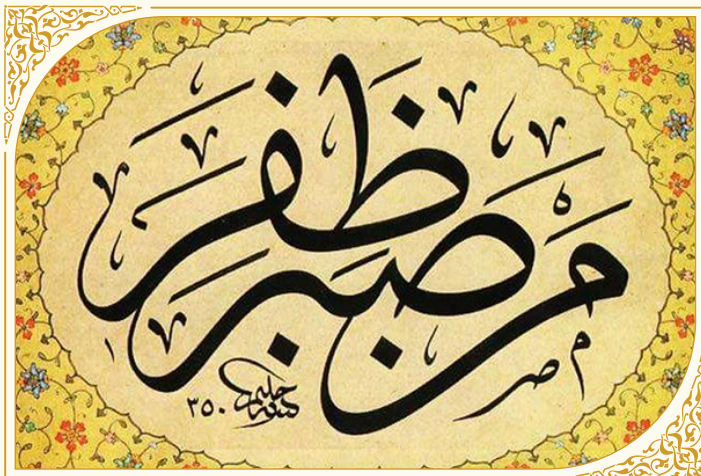 من صبر ظفر
حليم ٣٥٠